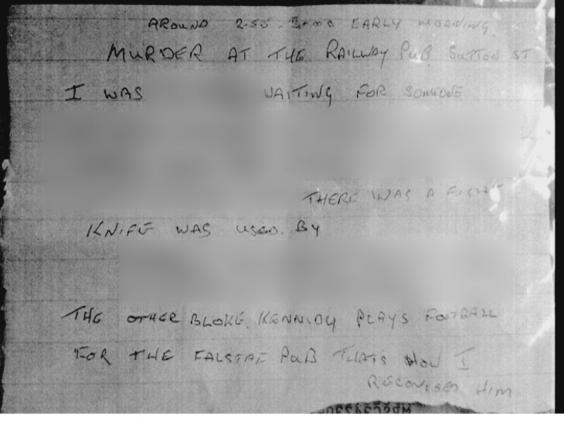 AROUND 2-50. 3-00 EARLY MORNING
MURDER AT THE RAILWAY PUB SUTTON ST
I WAS WAITING FOR SOMEONE
THERE WAS A FIGHT
KNIFE WAS USED. BY
THE OTHER BLOKE KENNIDY PLAYS FOOTBALL
FOR THE FALSTFF PUB THATS HOW I
RECONISED HIM